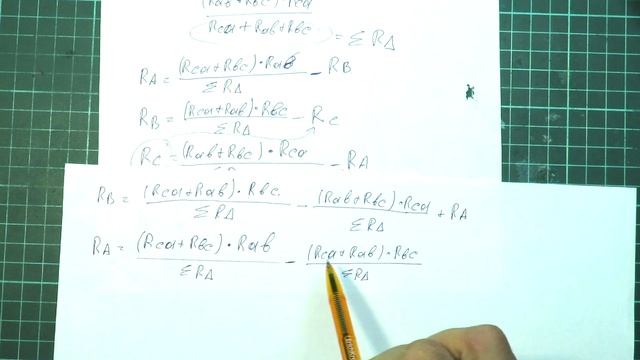 (Rab+Rbc)·Rca
Rca+Rab+Rbc = ΣRΔ
RA = (Rca+Rbc)·Rab / ΣRΔ - RB
RB = (Rca+Rab)·Rbc / ΣRΔ - Rc
Rc = (Rab+Rbc)·Rca - RA
RB = (Rca+Rab)·Rbc / ΣRΔ - (Rab+Rbc)·Rca / ΣRΔ + RA
RA = (Rca+Rbc)·Rab / ΣRΔ - (Rca+Rab)·Rbc / ΣRΔ